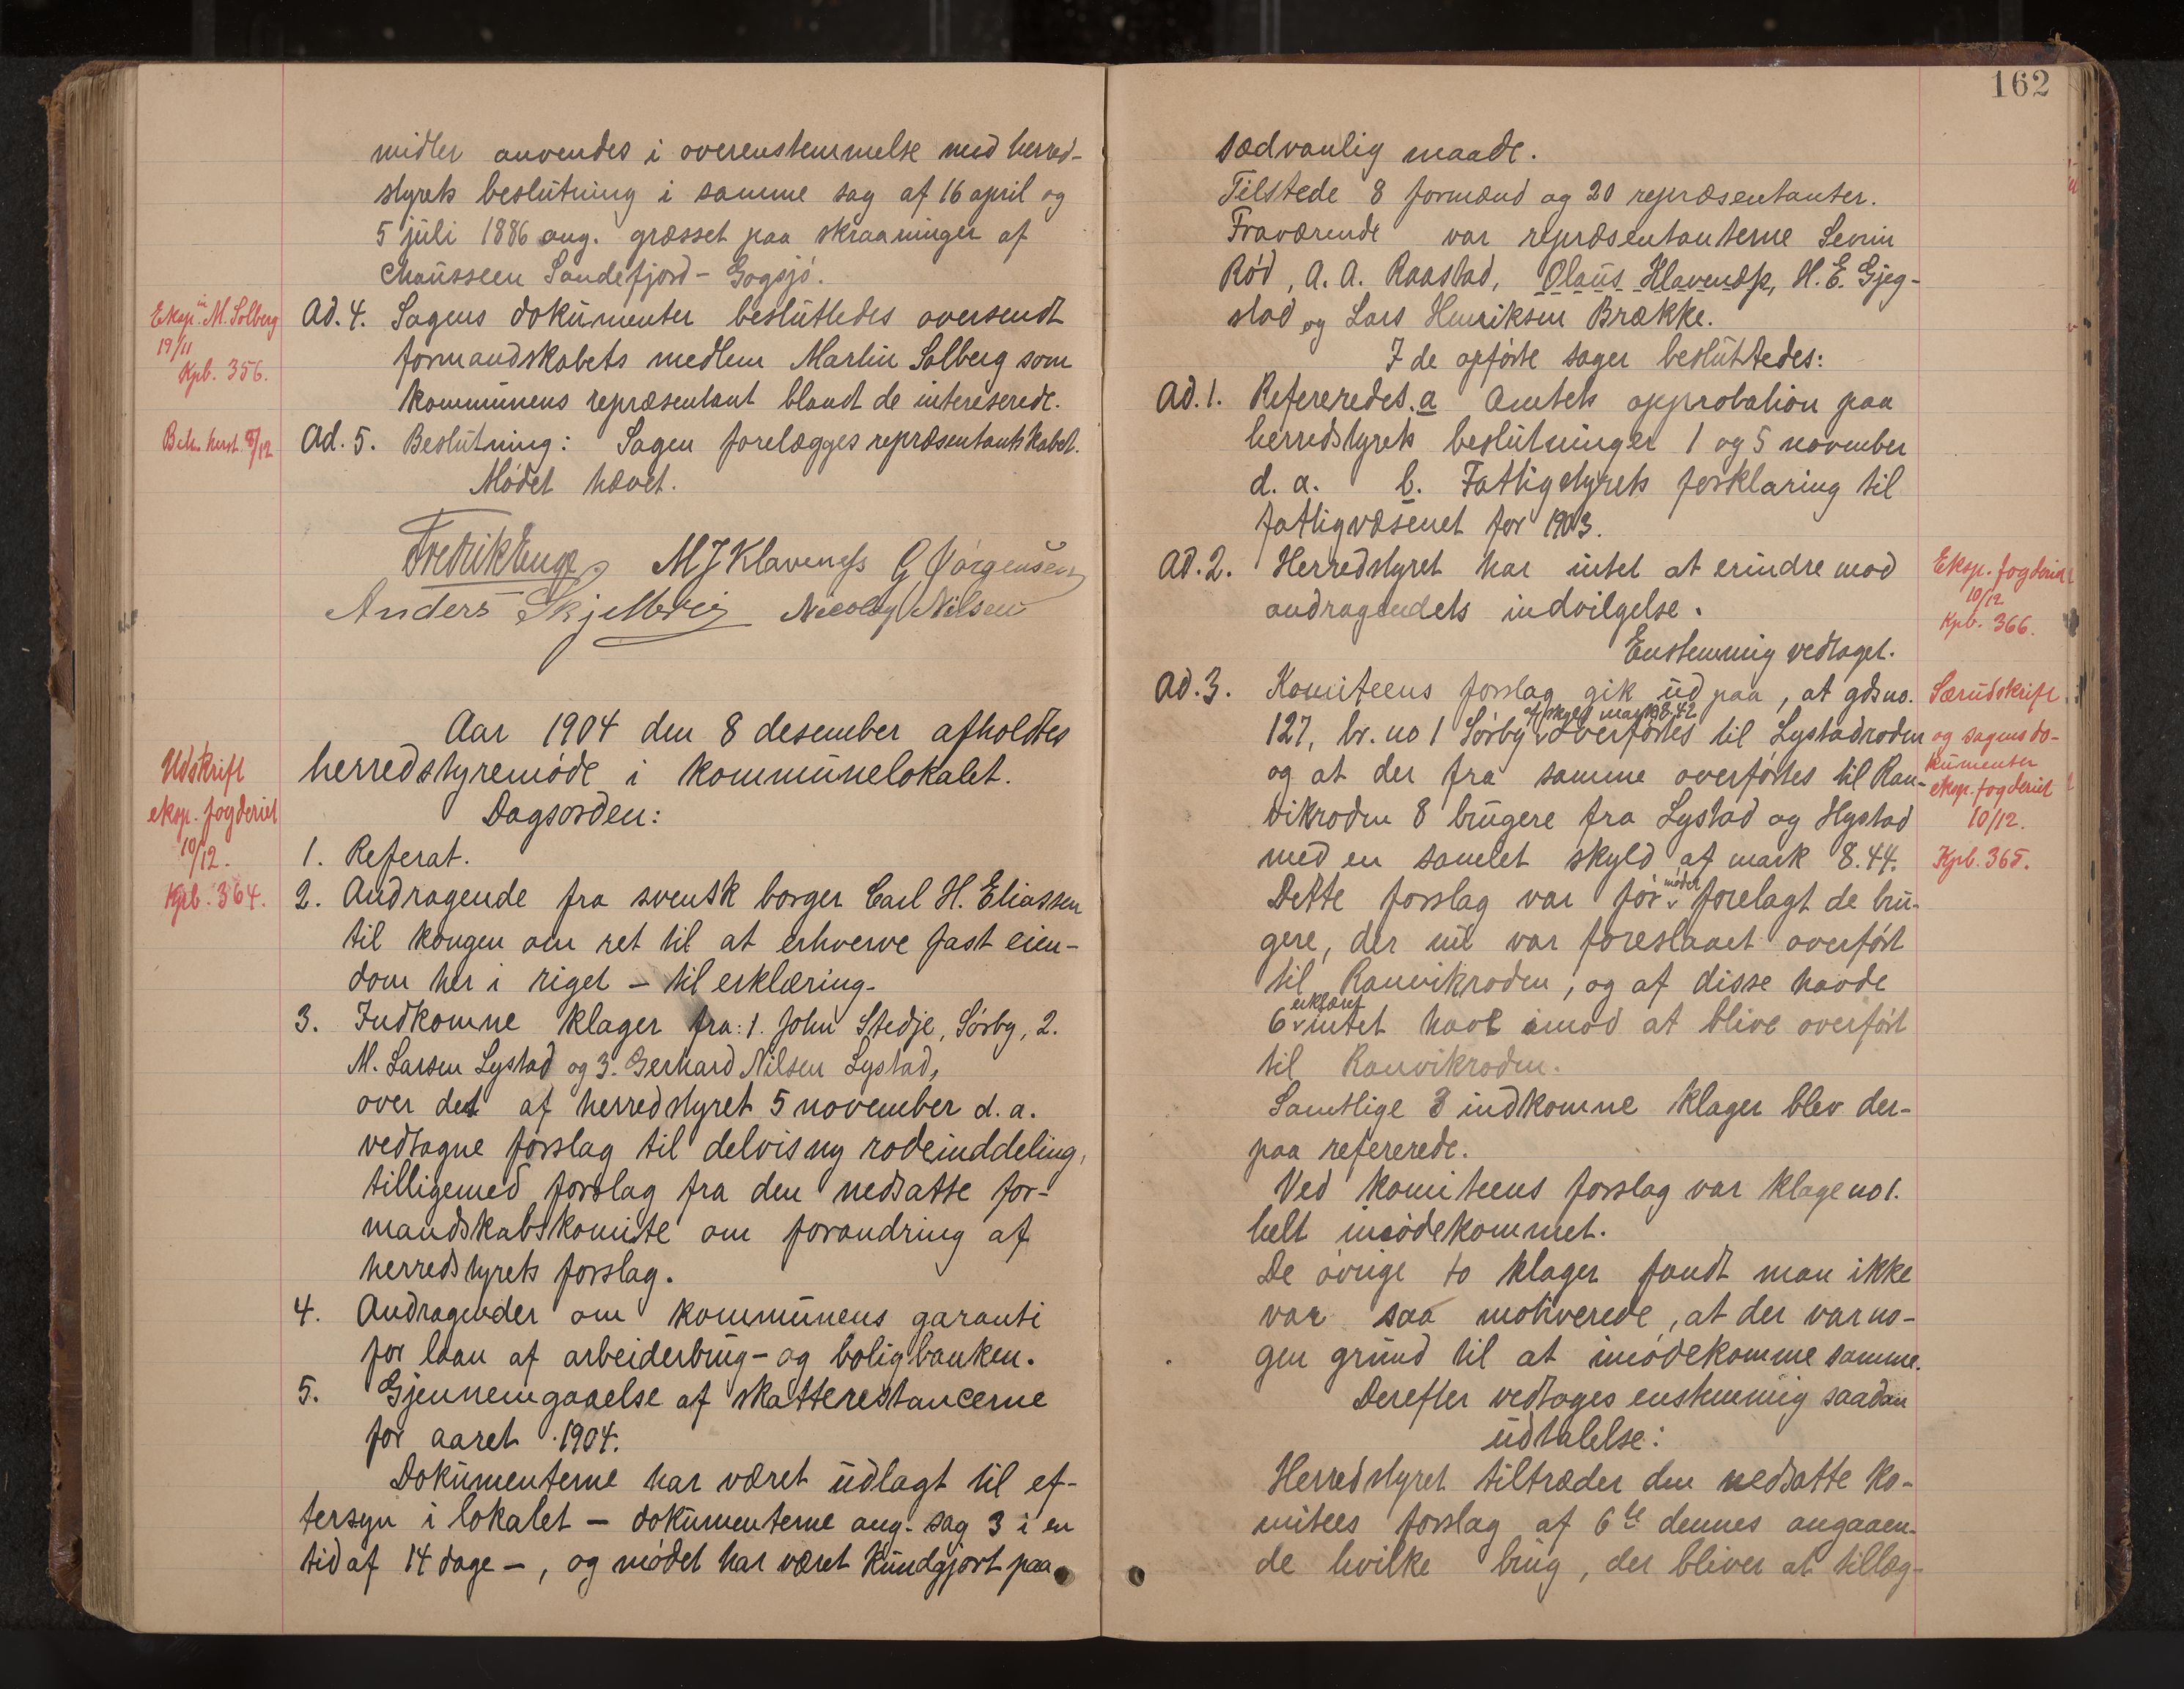 midler anvendes i overenstemmelse med herred-
styrets beslutning i samme sag af 16 april og
5 juli 1886 ang. græsset paa skraaninger af
Chausseen Sandefjord - Gogsjø.
Eksp. M. Solberg
19/11
Kpb. 356.
Ad. 4. Sagens dokumenter besluttedes oversendt
formandskabets medlem Martin Solberg som
kommunens repræsentant blandt de intereserede.
Beh. herst. 8/12
Ad. 5. Beslutning: Sagen forelægges repræsentantskabet.
Mødet hævet.
Fredrik Enge M J Klaveness G Jørgensen
Anders Skjelbrei Nicolay Nilsen
Aar 1904 den 8 desember afholdtes
herredstyremøde i kommunelokalet.
Udskrift
eksp. fogderiet
10/12.
Kpb. 364.
Dagsorden:
1. Referat.
2. Andragende fra svensk borger Carl H. Eliassen
til kongen om ret til at erhverve fast eien-
dom her i riget - til erklæring.
3. Indkomne klager fra: 1. John Stedje, Sørby, 2.
M. Larsen Lystad og 3. Gerhard Nilsen Lystad,
over det af herredstyret 5 november d. a.
vedtagne forslag til delvis ny rodeinddeling,
tilligemed forslag fra den nedsatte for-
mandskabskomite om forandring af
herredstyrets forslag.
4. Andragender om kommunens garanti
for laan af arbeiderbrug- og boligbanken.
5. Gjennemgaaelse af skatterestancerne
for aaret 1904.
Dokumenterne har været udlagt til ef-
tersyn i lokalet - dokumenterne ang. sag 3 i en
tid af 14 dage -, og mødet har været kundgjort paa
162
sædvanlig maade.
Tilstede 8 formænd og 20 repræsentanter.
Fraværende var repræsentanterne Sevrin
Rød, A. A. Raastad, Olaus Klavenæs, H. E. Gjeg-
stad og Lars Henriksen Brække.
I de opførte sager besluttedes:
Ad. 1. Refereredes. a Amtets approbation paa
herredstyrets beslutninger 1 og 5 november
d. a. b. Fattigstyrets forklaring til
fattigvæsenet for 1903.
Ad. 2. Herredstyret har intet at erindre mod
andragendets indvilgelse.
Enstemmig vedtaget.
Eksp. fogderiet
10/12
Kpb. 366.
Ad. 3. Komiteens forslag gik ud paa, at gds no.
af skyld mark 8.42
127, br. no 1 Sørby overførtes til Lystadroden
og at der fra samme overførtes til Ran-
vikroden 8 brugere fra Lystad og Hystad
med en samlet skyld af mark 8.44.
Særudskrift
og sagens do-
kumenter
eksp. fogderiet
10/12.
Kpb. 365.
Dette forslag var før mødet forelagt de bru-
gere, der nu var foreslaaet overført
til Ranvikroden, og af disse havde
6 erklæret intet have imod at blive overført
til Ranvikroden.
Samtlige 3 indkomne klager blev der-
paa refererede.
Ved komiteens forslag var klage no 1.
helt imødekommet.
De øvrige to klager fandt man ikke
var saa motiverede, at der var no-
gen grund til at imødekomme samme.
Derefter vedtoges enstemmig saadan
udtalelse:
Herredstyret tiltræder den nedsatte ko-
mitees forslag af 6te dennes angaaen-
de hvilke brug, der bliver at tillæg-